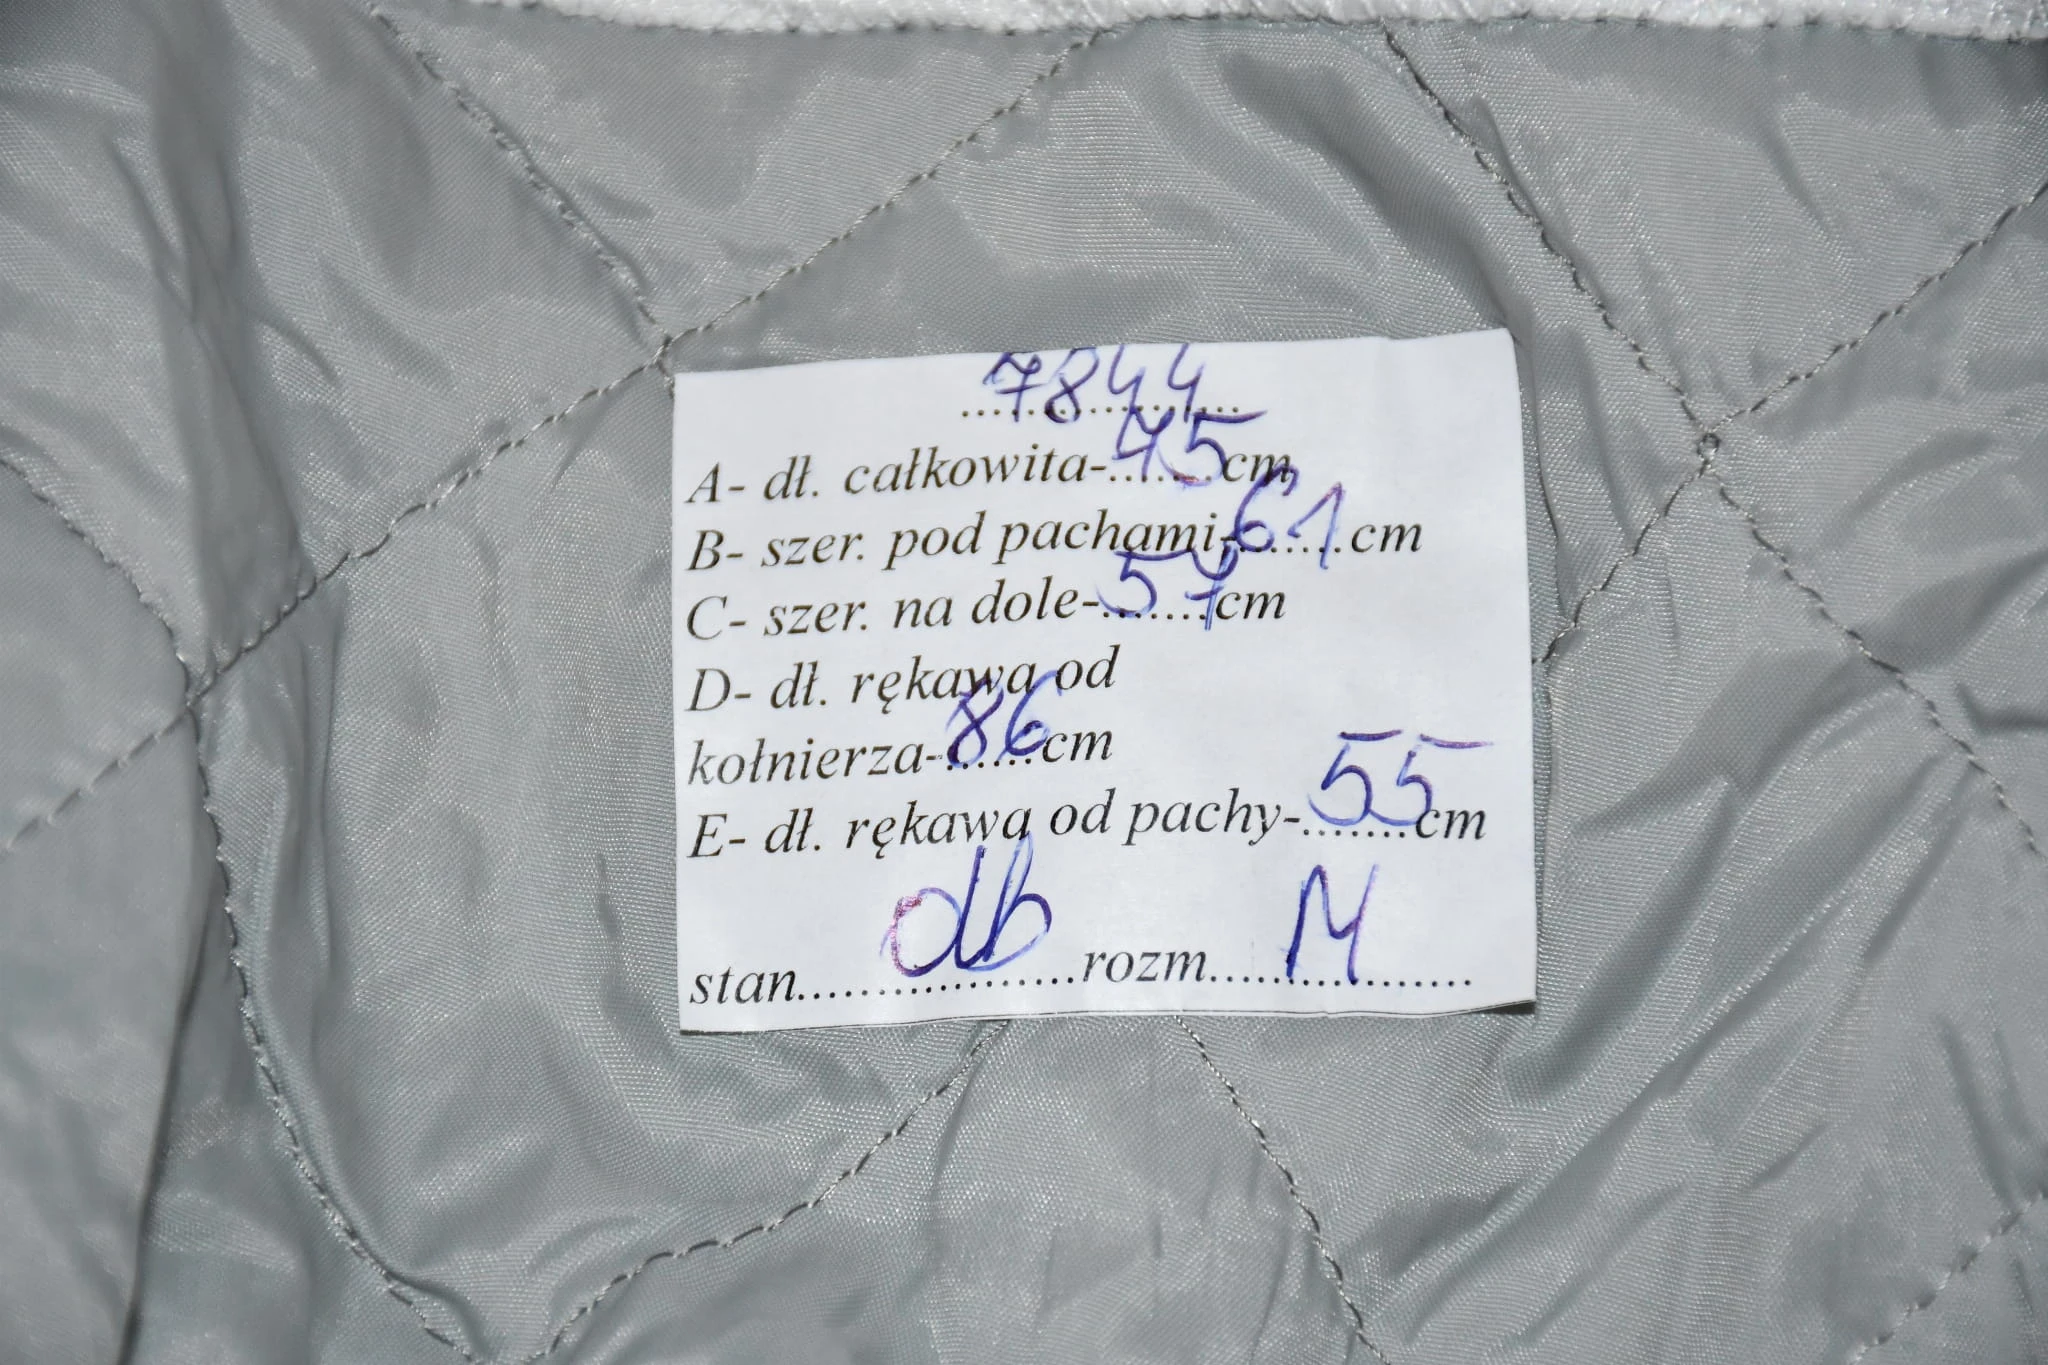 7844
A- dł. całkowita-75cm
B- szer. pod pachami-61cm
C- szer. na dole-57cm
D- dł. rękawa od
kołnierza-86cm
E- dł. rękawa od pachy-55cm
stan db rozm M